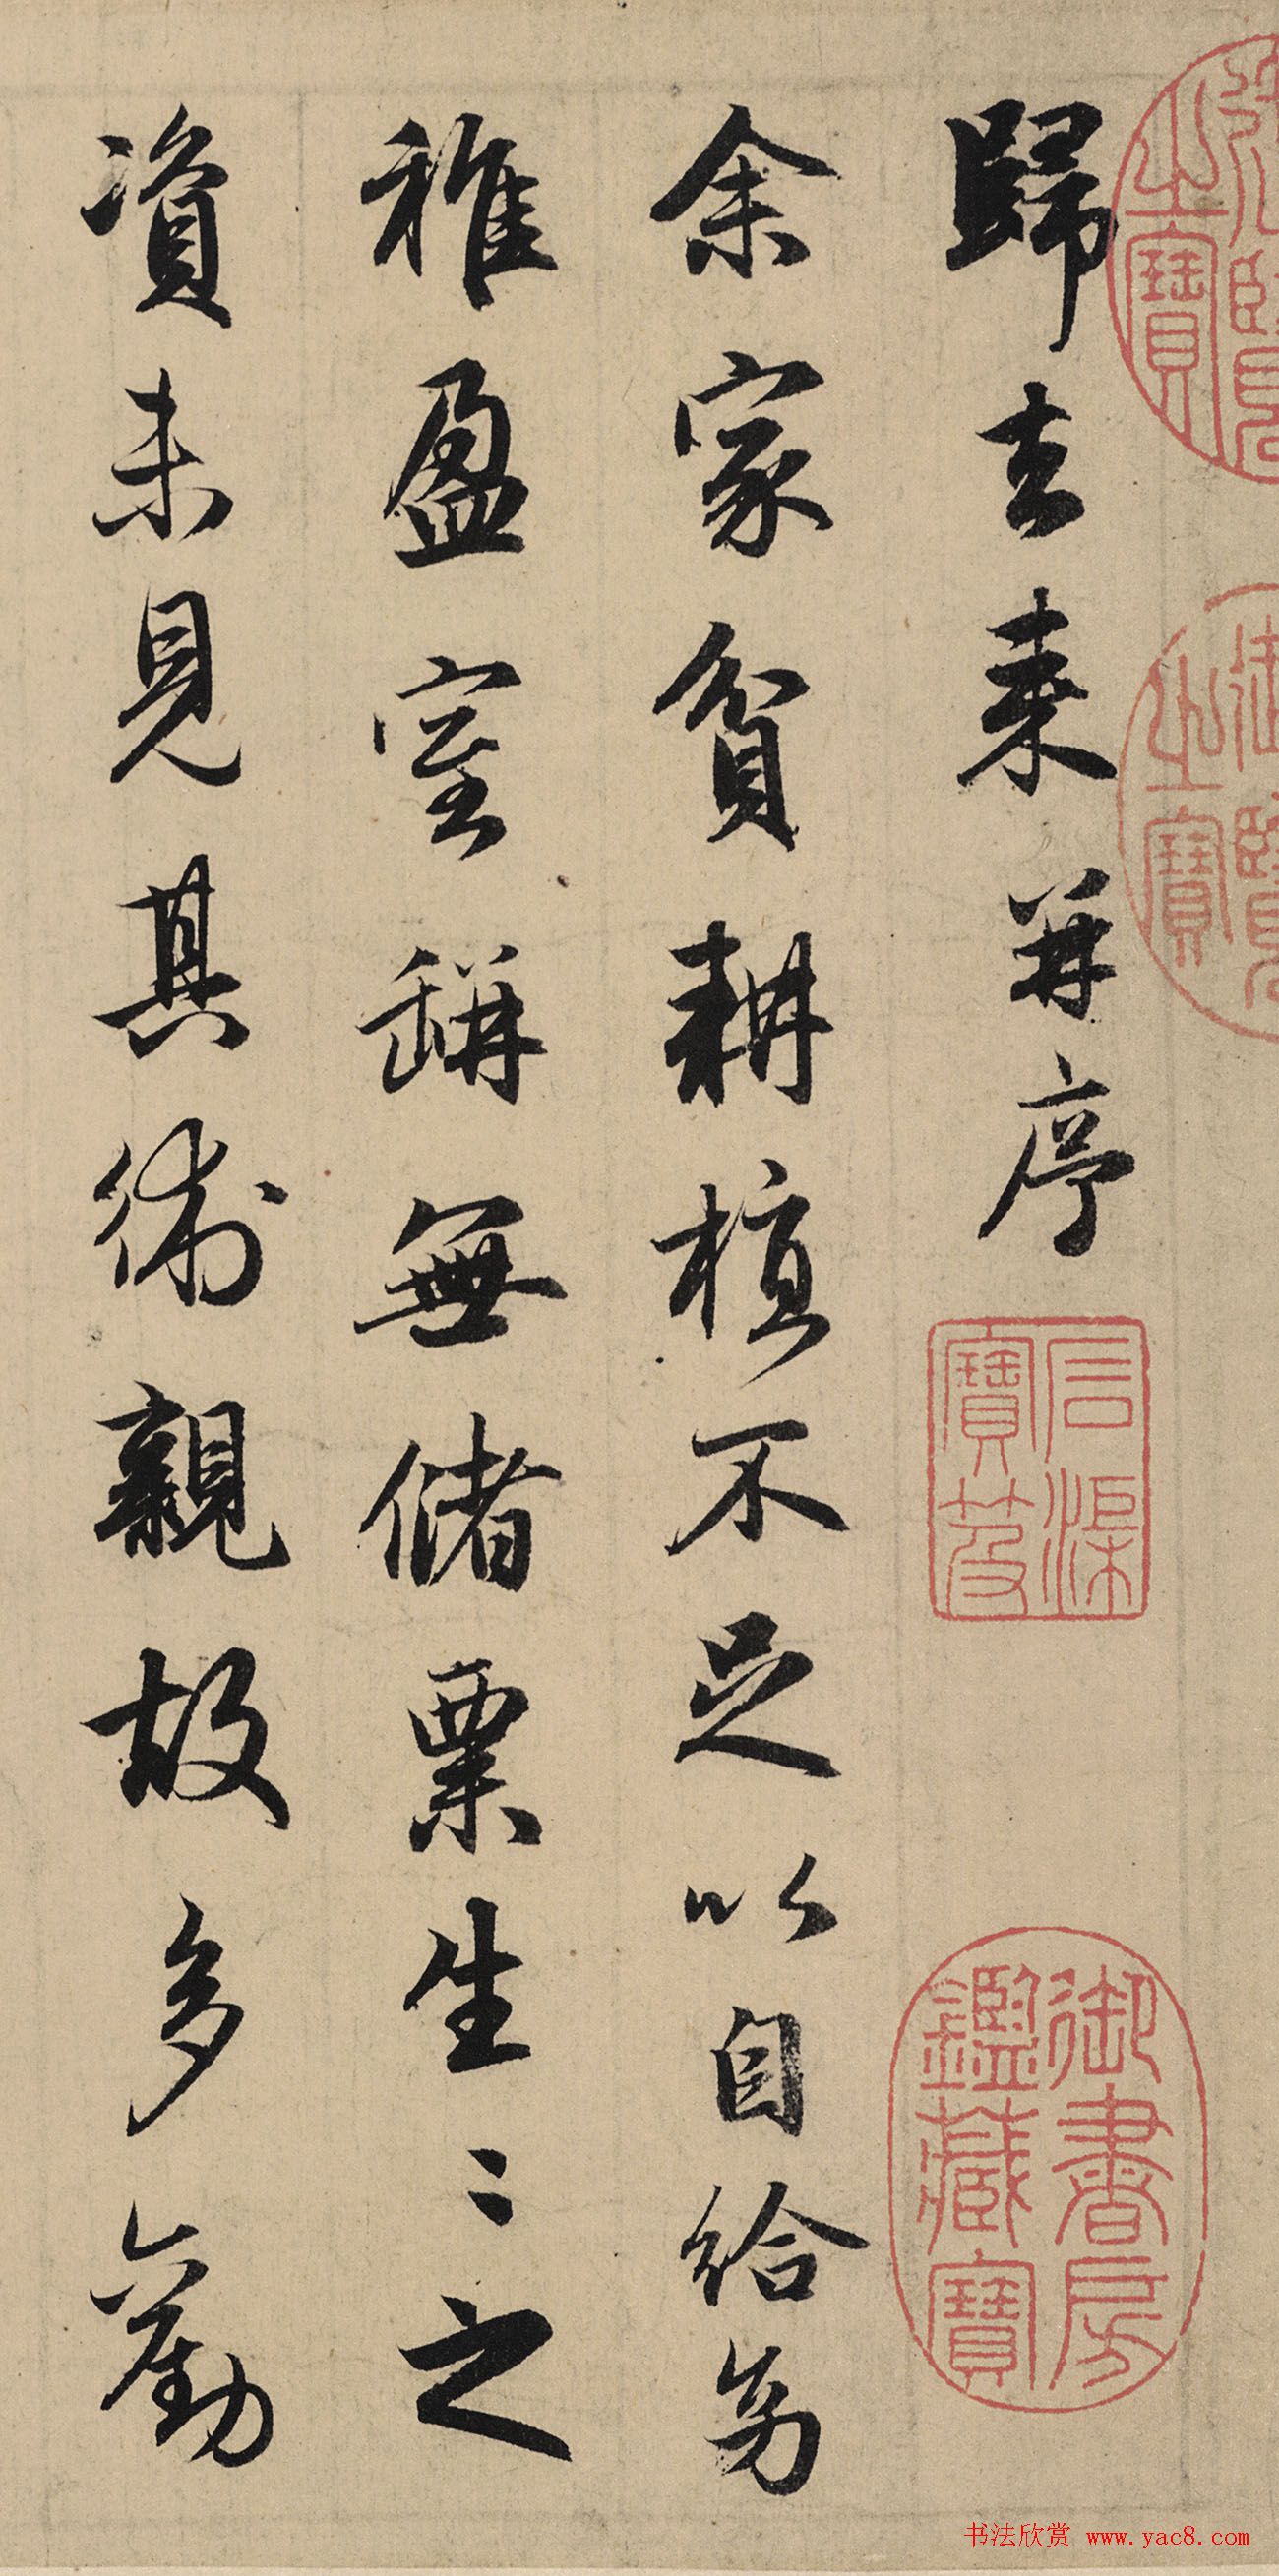 歸去來并序
余家貧耕植不足以自給幼
稚盈室缾無儲粟生〻之
資未見其術親故多勸
御書房鑑藏寶
石渠寶笈
书法欣赏 www.yac8.com